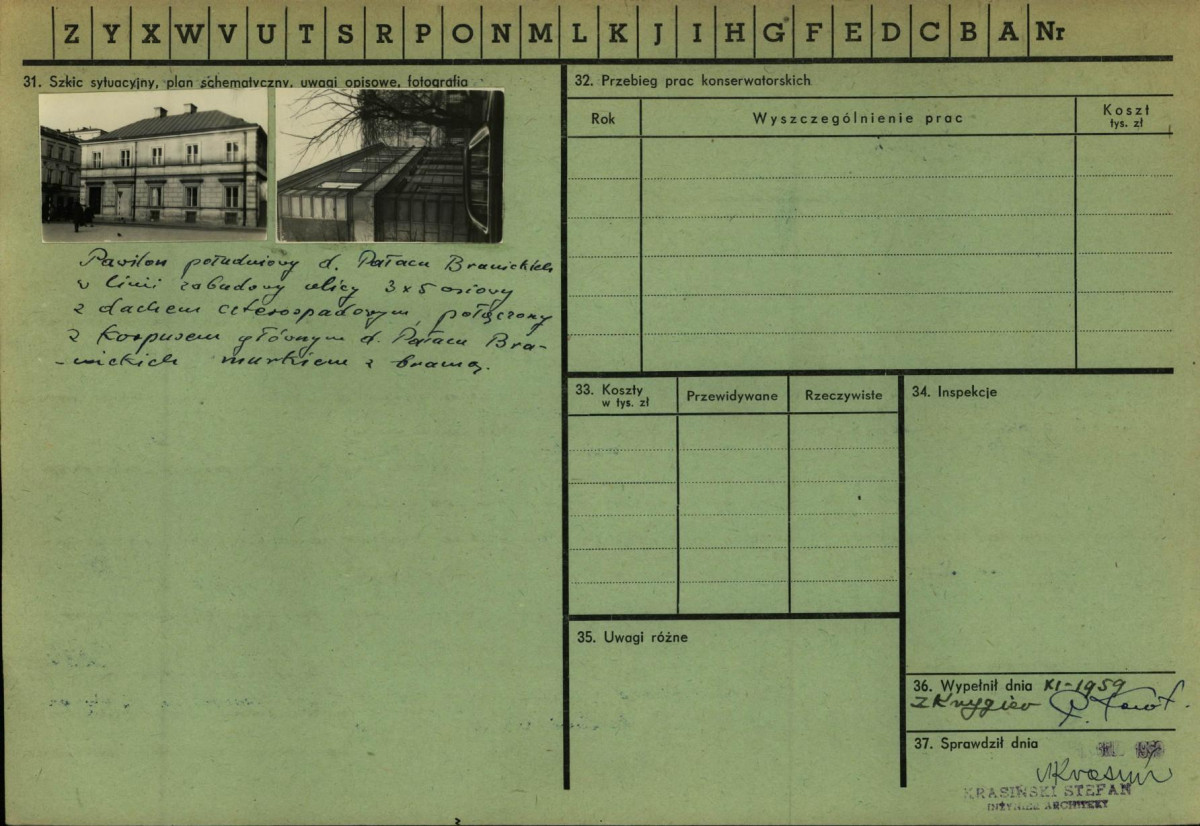 Z Y X W V U T S R P O N M L K J I H G F E D C B A Nr
31. Szkic sytuacyjny, plan schematyczny, uwagi opisowe, fotografia
Pawilon południowy d. Pałacu Branickich
w linii zabudowy ulicy 3x5 osiowy
z dachem czterospadowym, połączony
z korpusem głównym d. Pałacu Bra-
-nickich murkiem z bramą.
32. Przebieg prac konserwatorskich
Rok Wyszczególnienie prac Koszt
tys. zł
33. Koszty
w tys. zł
Przewidywane Rzeczywiste
34. Inspekcje
35. Uwagi różne
36. Wypełnił dnia XI-1959
37. Sprawdził dnia
KRASIŃSKI STEFAN
INŻYNIER ARCHITEKT